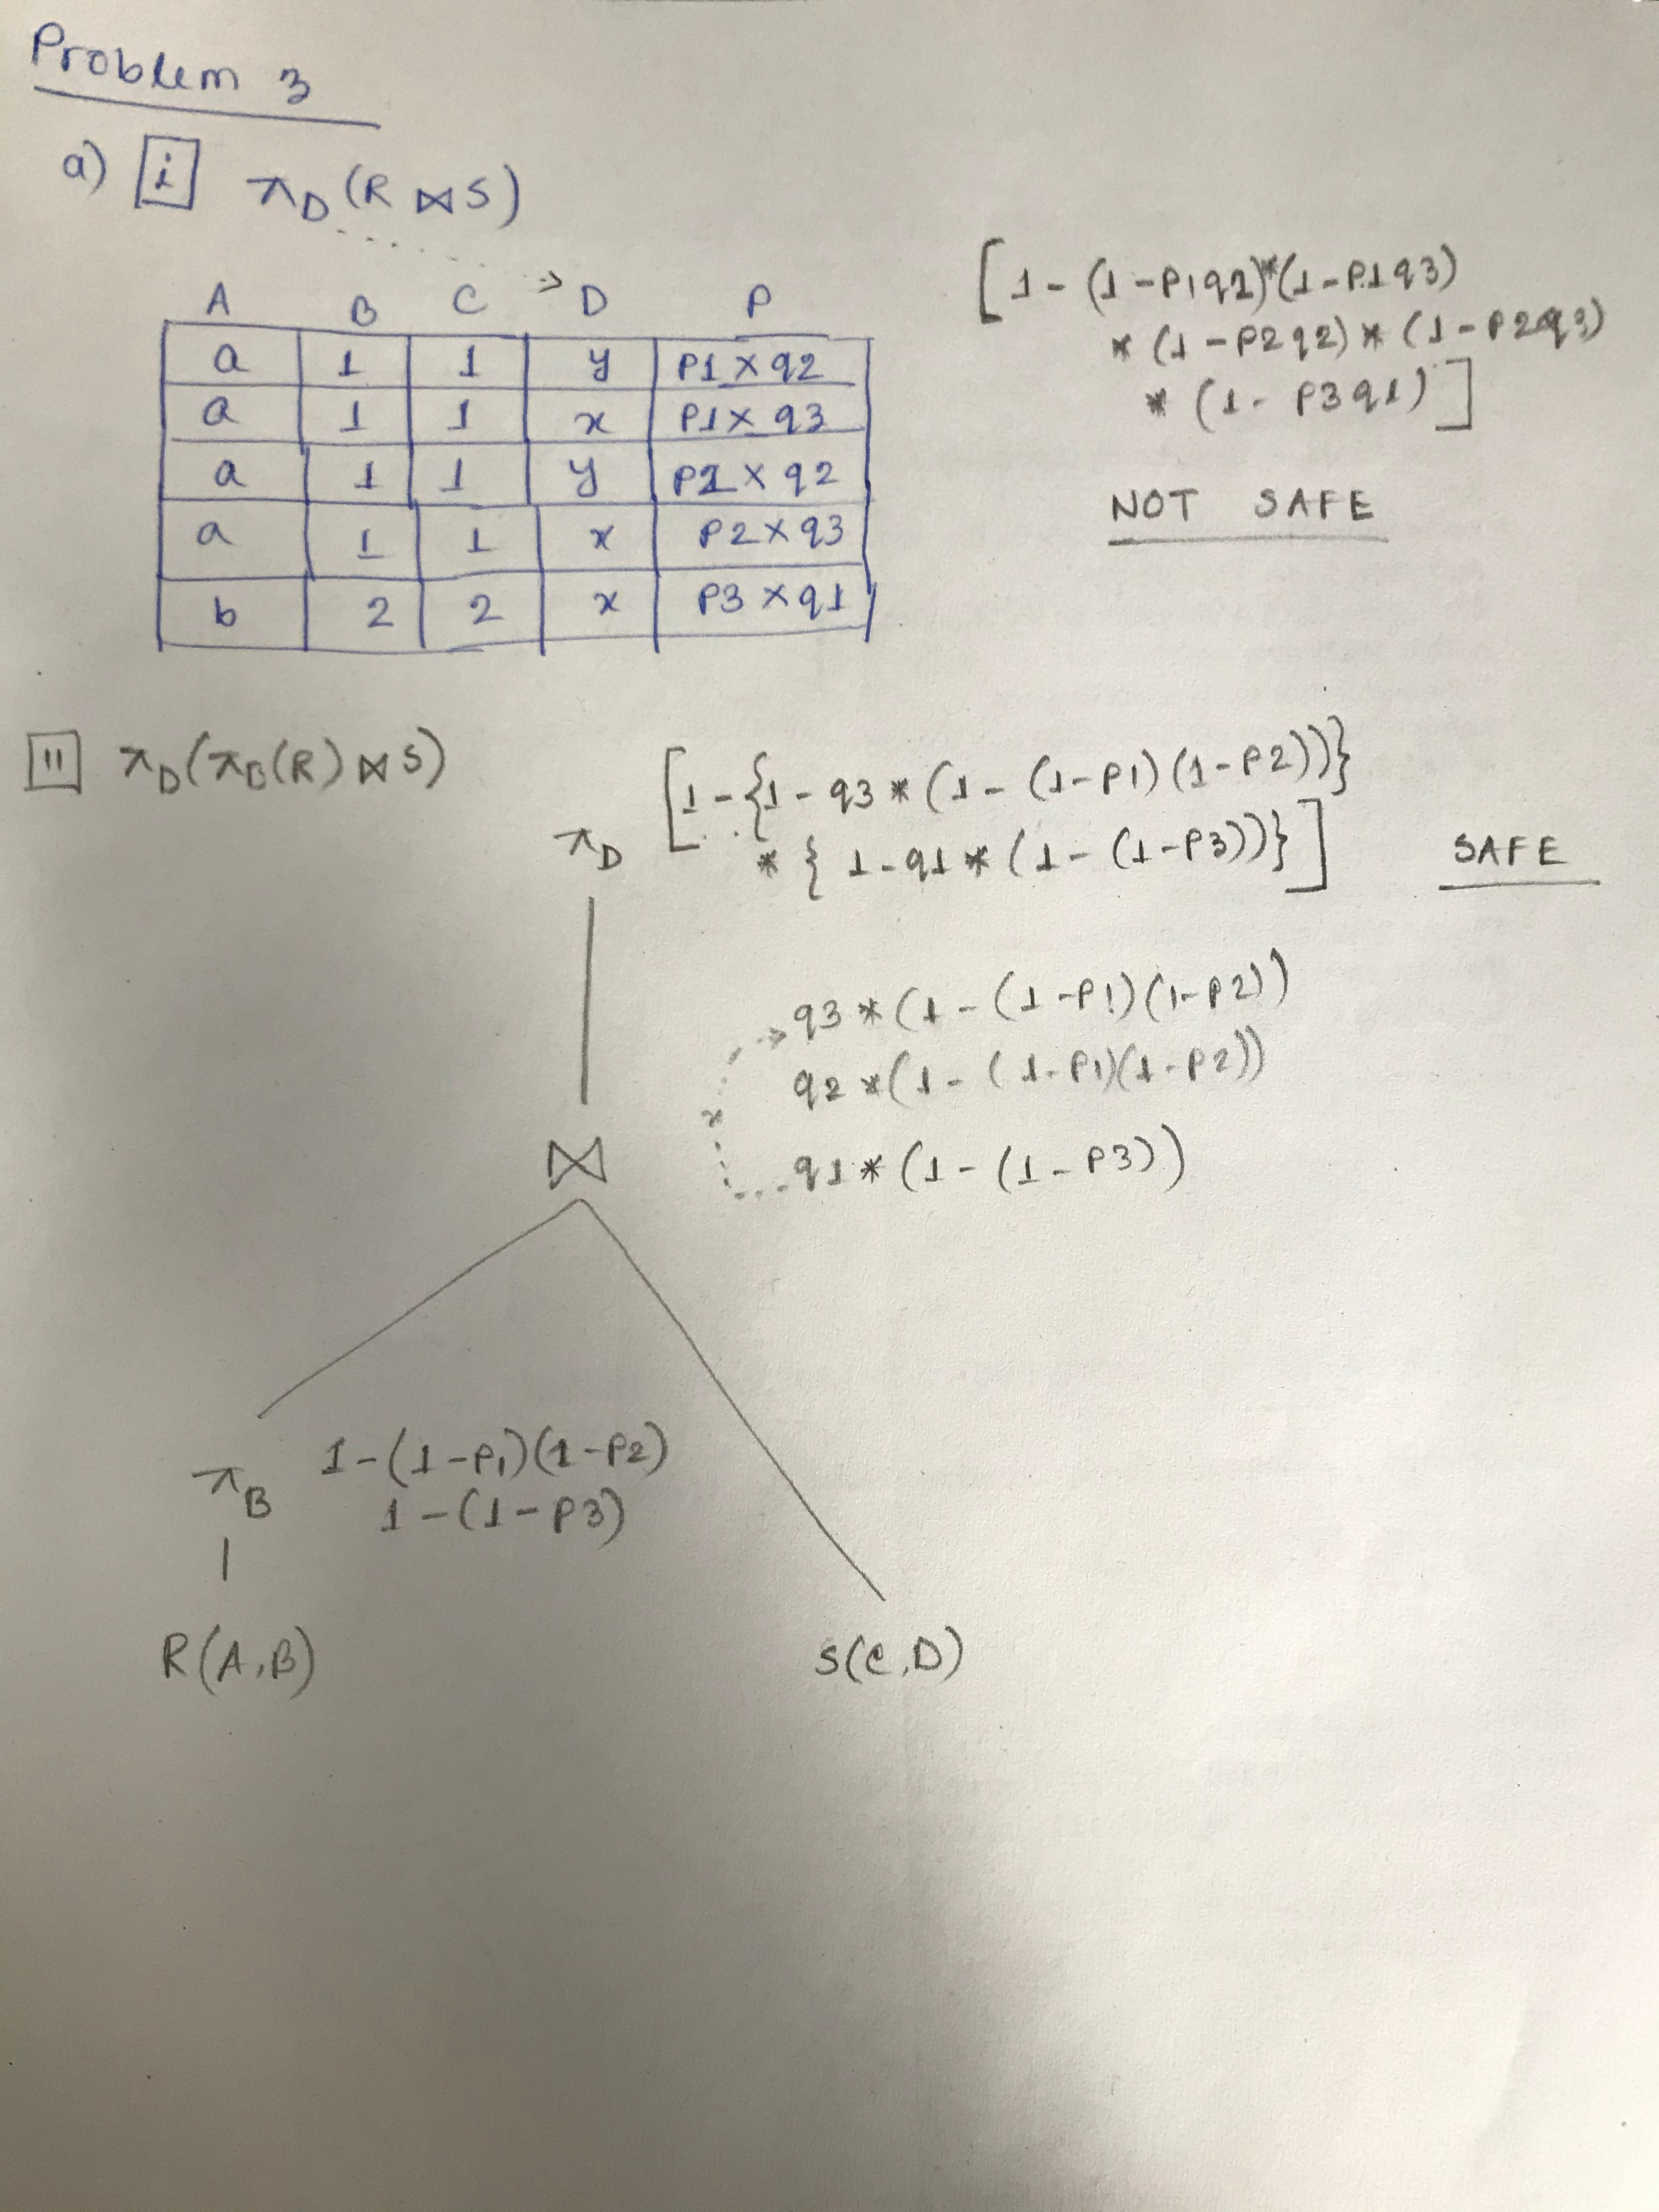 Problem 3
a) i π_D (R ⋈ S)
A B C D P
a 1 1 y P1 × q2
a 1 1 x P1 × q3
a 1 1 y P2 × q2
a 1 1 x P2 × q3
b 2 2 x P3 × q1
[1 - (1 - P1q2) * (1 - P1q3)
* (1 - P2q2) * (1 - P2q3)
* (1 - P3q1)]
NOT SAFE
ii π_D (π_B(R) ⋈ S)
π_D [1 - {1 - q3 * (1 - (1-P1)(1-P2))}
* {1 - q1 * (1 - (1-P3))}]
SAFE
q3 * (1 - (1-P1)(1-P2))
q2 * (1 - (1-P1)(1-P2))
x
⋈
q1 * (1 - (1 - P3))
π_B 1 - (1-P1)(1-P2)
1 - (1-P3)
R(A,B) S(C,D)